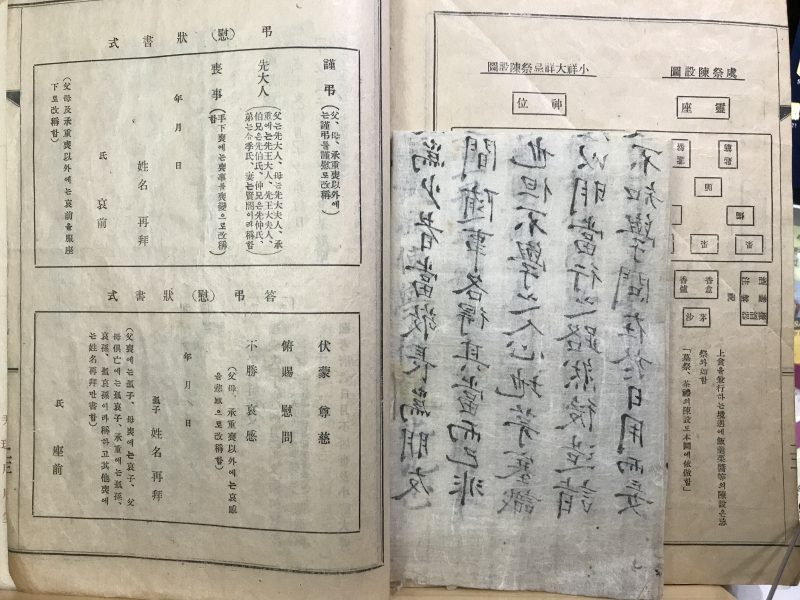 虞祭陳設圖
靈座
小祥大祥忌祭陳設圖
神位
香盒
香爐
茅沙
祭와如함
「墓祭、茶禮의陳設도本圖에依倣함」
爲少者當敬長爲朋友
間隨事各得其當而已非
也但不學之人心地茅塞識
以明當行之路然後造詣
不知學問在於日用而妄
弔(慰)狀書式
謹弔(父、母、承重喪以外에
는謹弔를謹慰로改稱)
先大人(父는先大人、母는先大夫人、承
重에는先王大人、先王大夫人、
伯兄은先伯氏、仲兄은先仲氏、
弟는令季氏、妻는賢閤이라稱함)
喪事(手下喪에는喪事를喪變으로改稱
함)
年 月 日
姓名 再拜
氏 哀前
(父母及承重喪以外에는哀前을服座
下로改稱함)
答弔(慰)狀書式
伏蒙尊慈
俯賜慰問
不勝哀感
(父母、承重喪以外에는哀感
을悲感으로改稱함)
年 月 日
孤子 姓名 再拜
(父喪에는孤子、母喪에는哀子、父
母俱亡에는孤哀子、承重에는孤孫、
哀孫、孤哀孫이라稱하고其他喪에
는姓名再拜만書함)
氏 座前